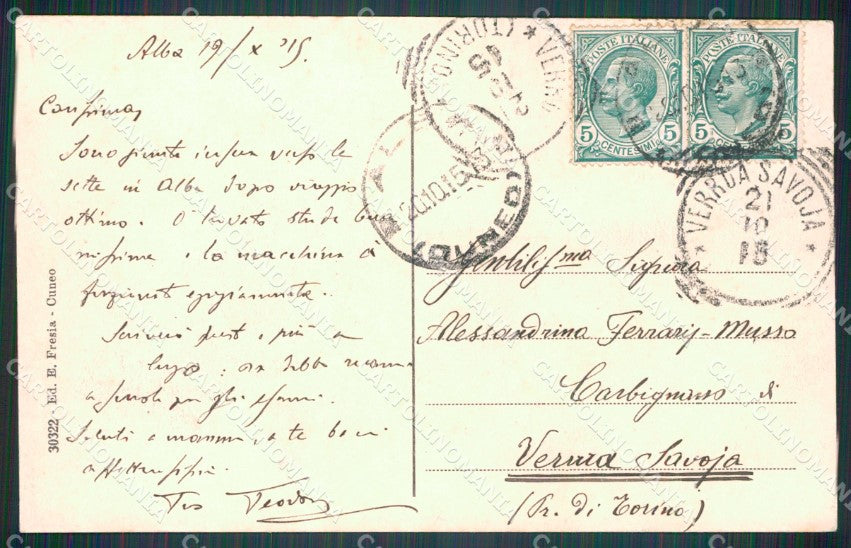 Alba 19/X '15.
Carissima,
Sono giunto iersera verso le
sette in Alba dopo viaggio
ottimo. O trovato strade buo
nissime e la macchina à
funzionato egregiamente.
Scriverò
lungo: ora debbo recarmi
a scuola per gli esami.
Saluti a mamma, a te baci
affettuosi.
Tuo
30322 - Ed. E. Fresia - Cuneo
POSTE ITALIANE
5 CENTESIMI 5
POSTE ITALIANE
5 CENTESIMI 5
VERRU
(TORINO)
ALBA
20.10.15
(CUNEO)
VERRUA SAVOJA
21
10
15
Gentilissma Signora
Alessandrina Ferraris-Musso
Carbignano di
Verrua Savoja
(Pr. di Torino)
CARTOLINOMANIA